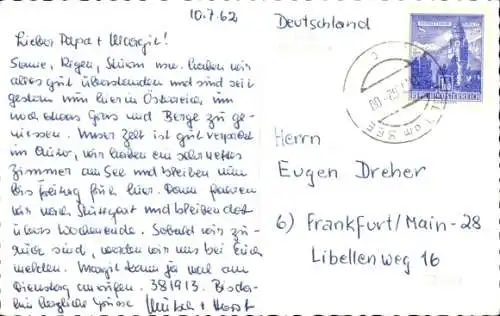 10.7.62
Lieber Papa + Margit!
Sonne, Regen, Sturm usw. haben wir
alles gut überstanden und sind seit
gestern nun hier in Österreich, um
noch etwas Gras und Berge zu ge-
niessen. Unser Zelt ist gut verpackt
im Auto, wir haben ein sehr nettes
Zimmer am See und bleiben nun
bis Freitag früh hier. Dann fahren
wir nach Stuttgart und bleiben dort
übers Wochenende. Sobald wir zu-
rück sind, werden wir uns bei Euch
melden. Margit kann ja mal am
Dienstag anrufen. 381913. Bis da-
hin herzliche Grüsse + Horst
Deutschland
REPUBLIK ÖSTERREICH
AM SEE
Herrn
Eugen Dreher
6) Frankfurt/Main-28
Libellenweg 16